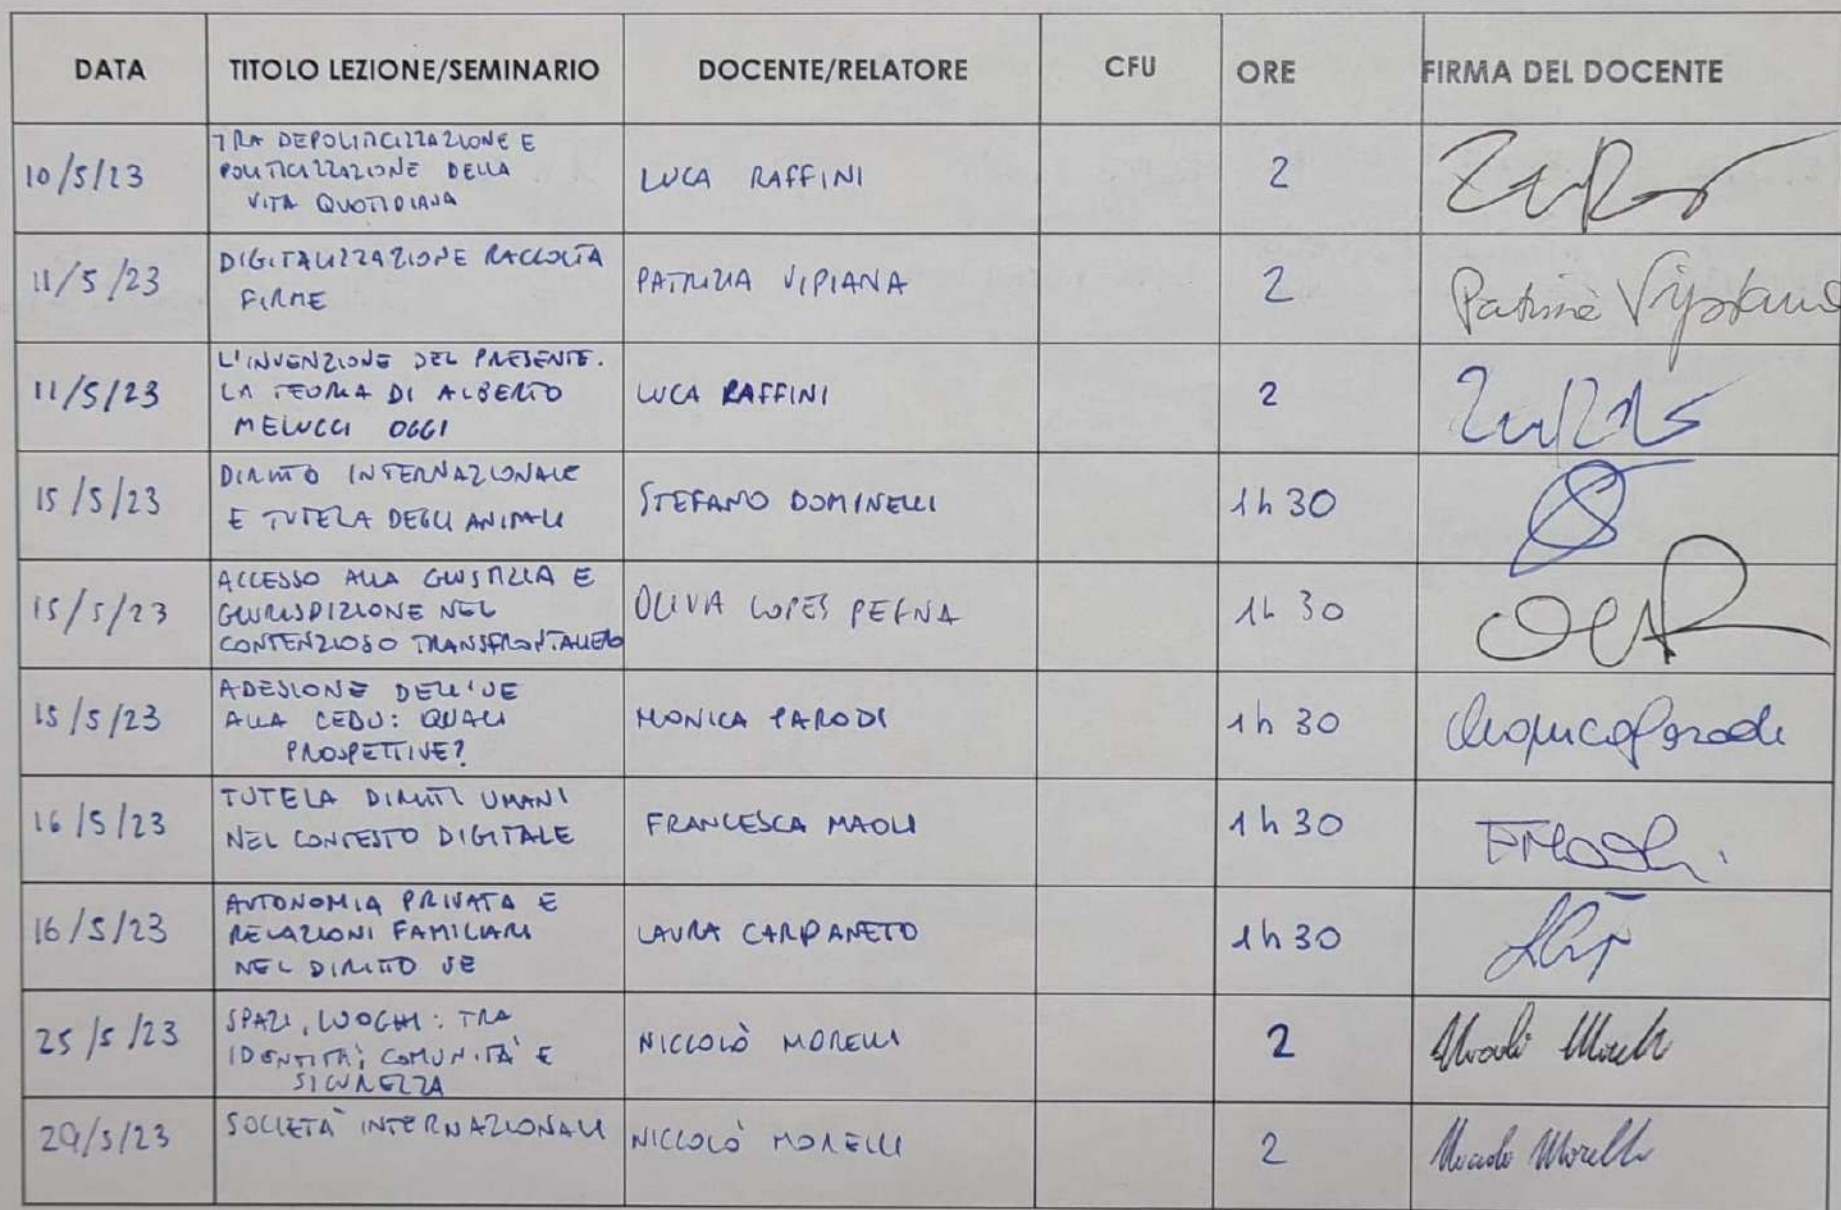 DATA TITOLO LEZIONE/SEMINARIO DOCENTE/RELATORE CFU ORE FIRMA DEL DOCENTE
TRA DEPOLITICIZZAZIONE E
POLITICIZZAZIONE DELLA
VITA QUOTIDIANA
10/5/23 LUCA RAFFINI 2
DIGITALIZZAZIONE RACCOLTA
FIRME
11/5/23 PATRIZIA VIPIANA 2 Patrizia Vipiana
L'INVENZIONE DEL PRESENTE.
LA TEORIA DI ALBERTO
MELUCCI OGGI
11/5/23 LUCA RAFFINI 2
DIRITTO INTERNAZIONALE
E TUTELA DEGLI ANIMALI
15/5/23 STEFANO DOMINELLI 1h 30
ACCESSO ALLA GIUSTIZIA E
GIURISDIZIONE NEL
CONTENZIOSO TRANSFRONTALIERO
15/5/23 OLIVIA LOPES PEGNA 1h 30
ADESIONE DELL'UE
ALLA CEDU: QUALI
PROSPETTIVE?
15/5/23 MONICA PARODI 1h 30 Monica Parodi
TUTELA DIRITTI UMANI
NEL CONTESTO DIGITALE
16/5/23 FRANCESCA MAOLI 1h 30 FMaoli
AUTONOMIA PRIVATA E
RELAZIONI FAMILIARI
NEL DIRITTO UE
16/5/23 LAURA CARPANETO 1h 30
SPAZI, LUOGHI: TRA
IDENTITÀ, COMUNITÀ E
SICUREZZA
25/5/23 NICCOLÒ MORELLI 2 Niccolò Morelli
SOCIETÀ INTERNAZIONALI
29/5/23 NICCOLÒ MORELLI 2 Niccolò Morelli